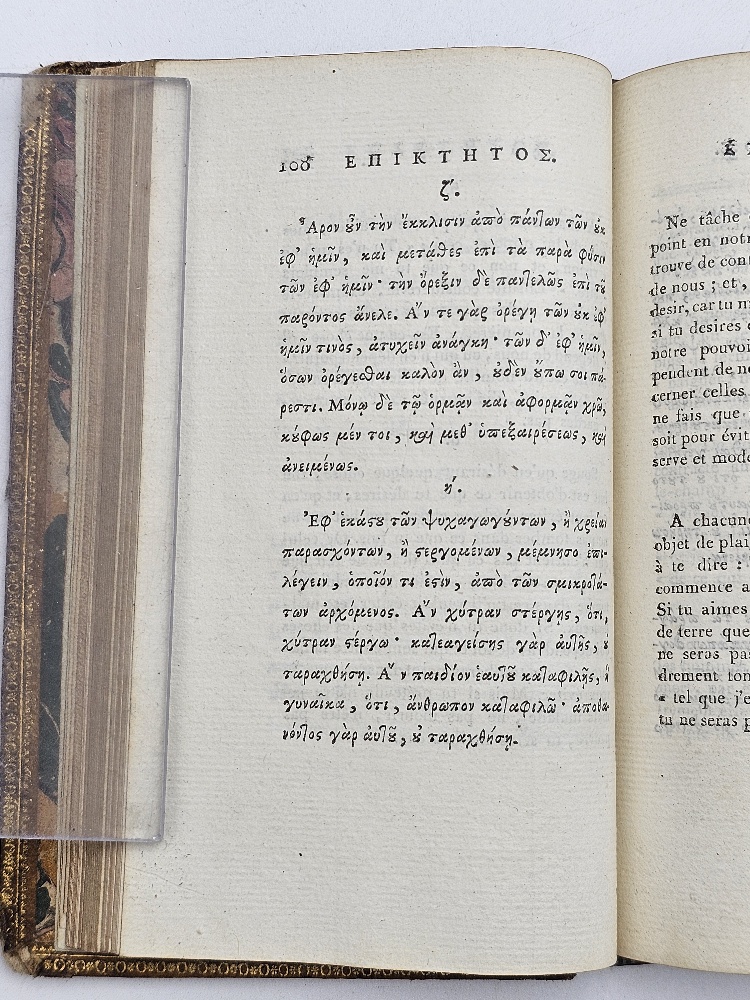 108 ΕΠΙΚΤΗΤΟΣ.
ζ'.
Ἆρον ȣ̓͂ν τὴν ἔκκλισιν ἀπὸ πάντων τῶν ȣ̓κ
ἐφ' ἡμῖν, καὶ μετάθες ἐπὶ τὰ παρὰ φύσιν
τῶν ἐφ' ἡμῖν· τὴν ὄρεξιν δὲ παντελῶς ἐπὶ τȣ͂
παρόντος ἄνελε. Ἄν τε γὰρ ὀρέγη τῶν ȣ̓κ ἐφ'
ἡμῖν τινὸς, ἀτυχεῖν ἀνάγκη· τῶν δ' ἐφ' ἡμῖν,
ὅσων ὀρέγεσθαι καλὸν ἂν, ȣ̓δὲν ὕπω σοι πά-
ρεστι. Μόνῳ δὲ τῷ ὁρμᾷν καὶ ἀφορμᾷν χρῶ,
κύφως μέν τοι, καὶ μεθ' ὑπεξαιρέσεως, καὶ
ἀνειμένως.
η'.
Ἐφ' ἑκάϛȣ τῶν ψυχαγωγȣ́ντων, ἢ χρείαν
παρασχόντων, ἢ ϛεργομένων, μέμνησο ἐπι-
λέγειν, ὁποῖόν τι ἐϛὶν, ἀπὸ τῶν σμικροτά-
των ἀρχόμενος. Ἂν χύτραν στέργης, ὅτι,
χύτραν ϛέργω· κατεαγείσης γὰρ αὐτῆς, ȣ̓
ταραχθήση. Ἂν παιδίον ἑαυτȣ͂ καταφιλῆς, ἢ
γυναῖκα, ὅτι, ἄνθρωπον καταφιλῶ· ἀποθα-
νόντος γὰρ αὐτȣ͂, ȣ̓ ταραχθήση.
Ne tâche
point en notr
trouve de cont
de nous ; et,
desir, car tu m
si tu desires
notre pouvoi
pendent de no
cerner celles
ne fais que
soit pour évit
serve et modé
A chacun
objet de plai
à te dire :
commence a
Si tu aimes
de terre que
ne seras pas
drement ton
« tel que j'e
tu ne seras p